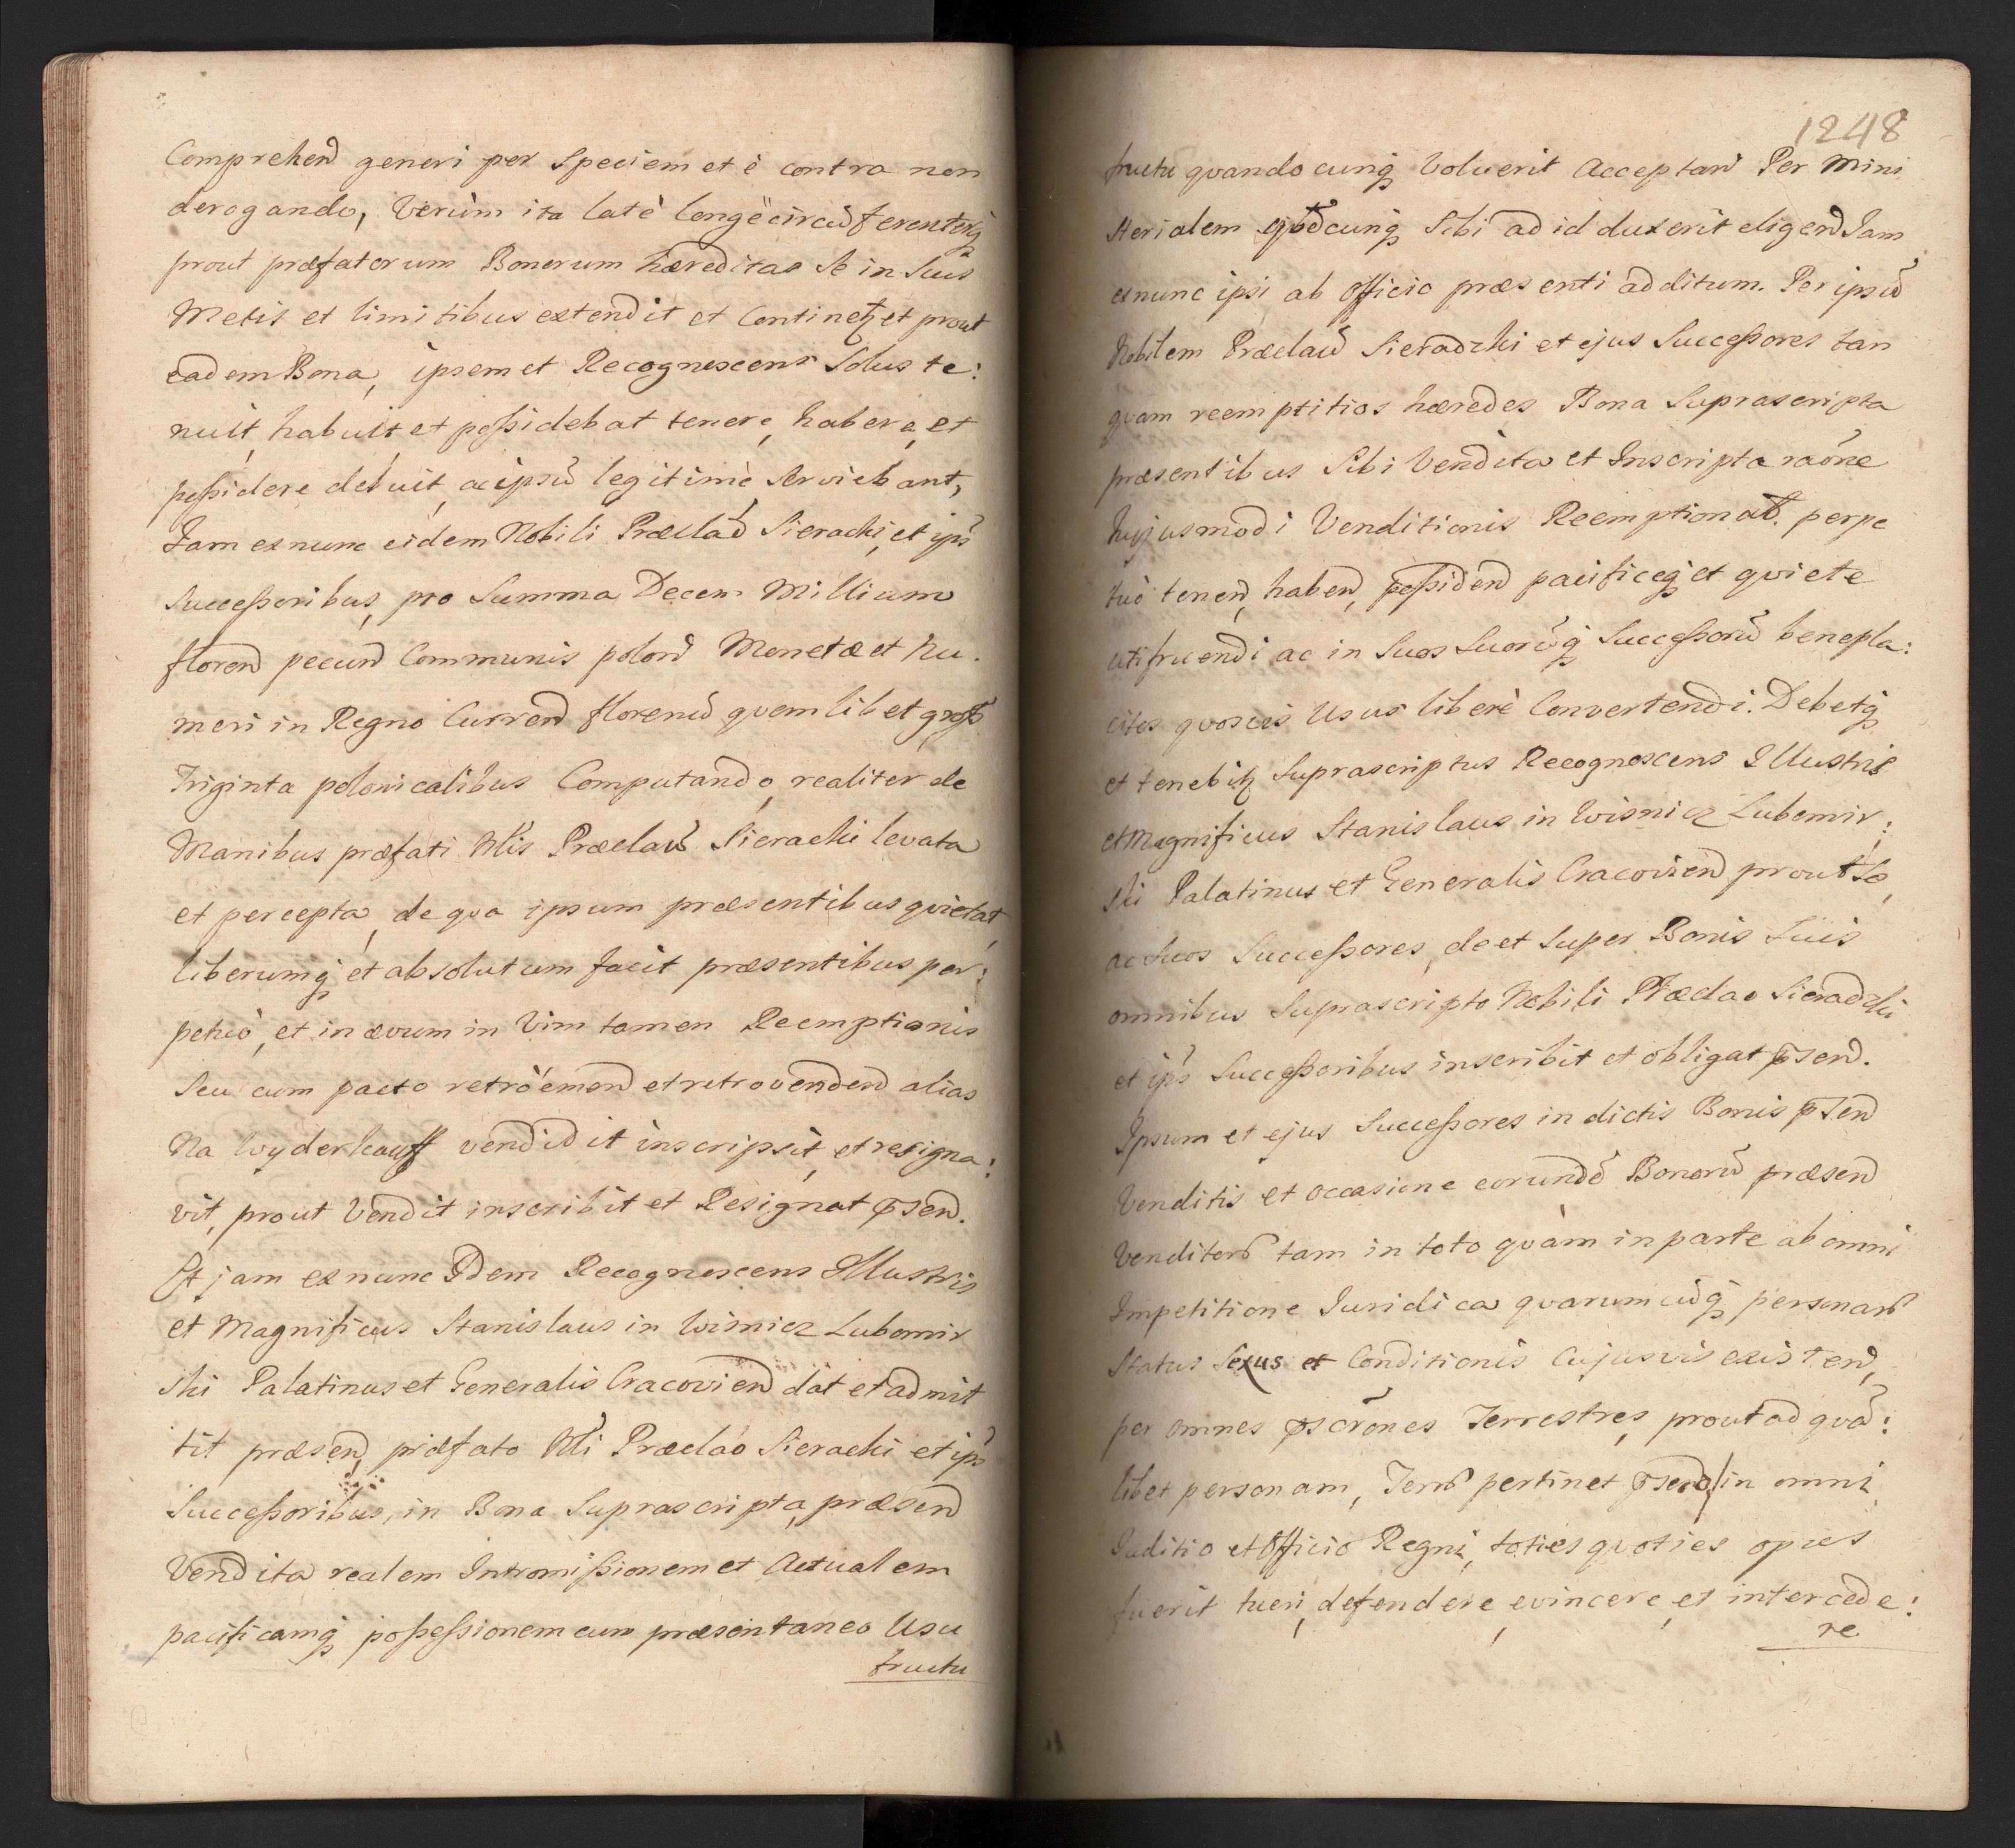 Comprehend generi per Speciem et è contra non
derogando, Verùm ita latè longè circũferenterq3
prout præfatorum Bonorum hæreditas Se in Suis
Metis et limitibus extendit et Continetꝫ et prout
eadem Bona, ipsemet Recognoscens Solus te:
nuit, habuit, et possidebat tenere, habere, et
possidere debuit, ac ipsũ legitimè Serviebant,
Jam ex nunc eidem Nobili Præclaõ Sieracki, et ips
Successoribus, pro Summa Decem Millium
floren pecun Communis polon Monetæ et Nu.
meri in Regno Curren florenũ quemlibet gross
Triginta polonicalibus Computando, realiter de
Manibus præfati Nlis Præclaũ Sieracki levata
et percepta, de qva ipsum præsentibus qvietat,
liberumq3 et absolutum facit præsentibus per:
petuò, et in ævum in Vim tamen Reemptionis
Seu cum pacto retrò emen et retrovenden alias
Na Wyderkauff vendidit inscripsit, et resigna:
vit, prout Vendit inscribit et Resignat p̄sen.
Et jam ex nunc Idem Recognoscens Illustris
et Magnificus Stanislaus in Wisnicz Lubomir
ski Palatinus et Generalis Cracovien dat et admit
tit præsen, præfato Nli Præclao Sieracki et ips
Successoribus, in Bona Suprascripta, præsen
Vendita realem Intromissionem et Actualem
pacificamq3 possessionem cum præsentaneo Usu
fructu
1248
fructu qvandocunq3 Voluerit Acceptan Per Mini
sterialem qõdcunq3 Sibi ad id duxerit eligen Jam
ex nunc ipsi ab Officio præsenti additum. Per ipsũ
Nobilem Præclaũ Sieradzki et ejus Successores tan
qvam reemptitios hæredes Bona Suprascripta
præsentibus Sibi Vendita et Inscripta raõne
hujusmodi Venditionis Reemptionat. perpe
tuò tenen, haben, possiden pacificeq3 et qviete
utifruendi ac in Suos Suorũq3 Successorũ benepla:
citos qvosvis Usus liberè Convertendi. Debetq3
et tenebitꝫ Suprascriptus Recognoscens Illustris
et Magnificus Stanislaus in Wisnicz Lubomir:
ski Palatinus et Generalis Cracovien prout Se,
ac Suos Successores, de et Super Bonis Suis
omnibus Suprascripto Nobili Præclao Sieradzki
et ips Successoribus inscribit et obligat p̄sen.
Ipsum et ejus Successores in dictis Bonis p̄sen
Venditis et occasione eorundẽ Bonorũ præsen
Venditor tam in toto qvàm in parte ab omni
Impetitione Juridica qvarumcũq3 personar
Status Sexus et Conditionis Cujusvis existen,
per omnes p̄scrõnes Terrestres, prout ad qvã:
libet personam, Terr pertinet p̄sen, in omni
Juditio et Officio Regni, toties qvoties opus
fuerit tueri, defendere, evincere, et intercede:
re